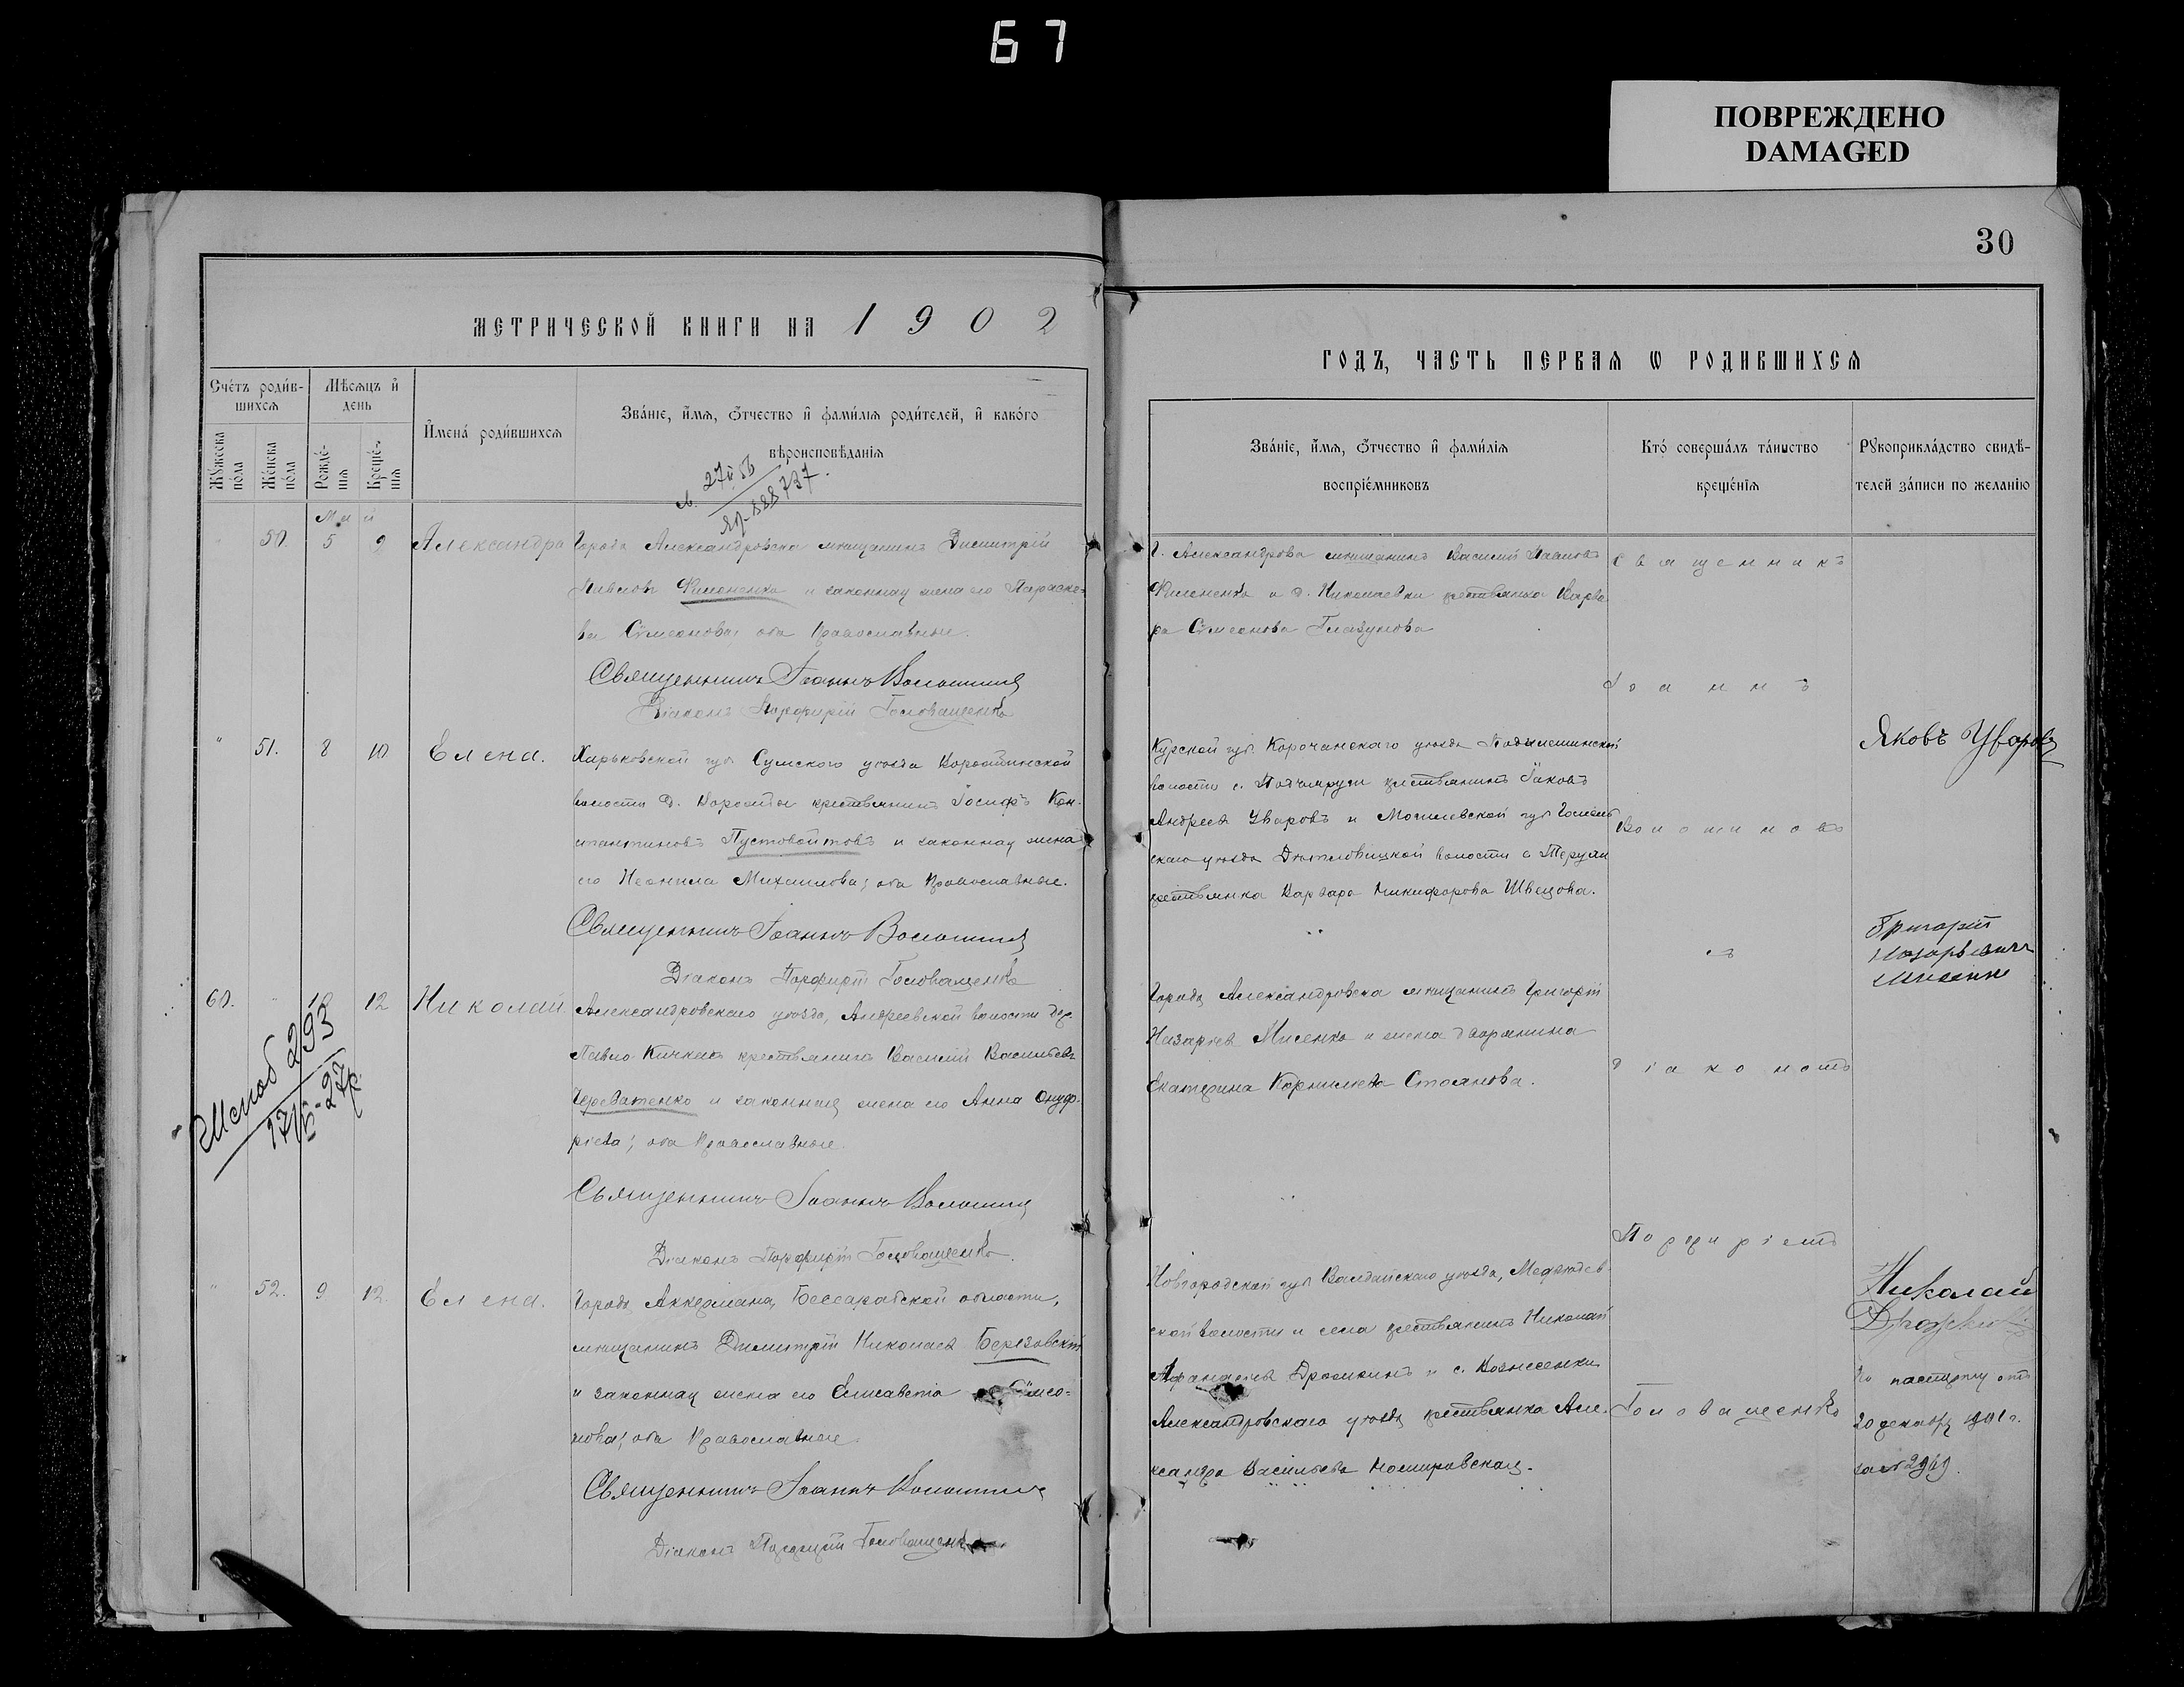 67
ПОВРЕЖДЕНО
DAMAGED
30
МЕТРИЧЕСКОЙ КНИГИ НА 1902
ГОДЪ, ЧАСТЬ ПЕРВАЯ Ѡ РОДИВШИХСЯ
Счетъ родив-
шихся
Мѣсяцъ и
день
Мужеска
пола
Женска
пола
Рожде-
нія
Креще-
нія
Имена родившихся
Званіе, имя, отчество и фамилія родителей, и какого
вѣроисповѣданія
Званіе, имя, отчество и фамилія
воспріемниковъ
Кто совершалъ таинство
крещенія
Рукоприкладство свидѣ-
телей записи по желанію
Май
50. 5 9 Александра Города Александровска мѣщанинъ Димитрій
Павловъ Филоненко и законная жена его Параске-
ва Симеонова, оба Православные.
Священникъ Іоаннъ Волошинъ
Діаконъ Порфирій Головащенко
Г. Александрова мѣщанинъ Василій Павловъ
Филоненко и д. Николаевки крестьянка Варва
ра Симеонова Глазунова
" 51. 8 10 Елена. Харьковской губ. Сумского уѣзда
волости крестьянинъ Іосифъ Кон-
стантиновъ Пустовойтовъ и законная жена
его Неонила Михаилова; оба Православные.
Священникъ Іоаннъ Волошинъ
Діаконъ Порфирій Головащенко
Курской губ. Корочанскаго уѣзда
волости с. крестьянинъ Іаковъ
Андреевъ Уваровъ и Могилевской губ. Гомель
скаго уѣзда Дятловицкой волости с. Терухи
крестьянка Варвара Никифорова Швецова.
Яковъ Уваровъ
60. 10 12 Николай Александровскаго уѣзда, Андреевской волости дер.
Павло-Кичкасъ крестьянинъ Василій Васильевъ
Череватенко и законная жена его Анна Онуф-
ріева; оба Православные.
Священникъ Іоаннъ Волошинъ
Діаконъ Порфирій Головащенко.
Города Александровска мѣщанинъ Григорій
Назарьевъ Мисенко и жена дворянина
Екатерина Корнильева Стоянова.
Григорій
Назарьевичъ
" 52. 9 12. Елена. Города Аккермана, Бессарабской области,
мѣщанинъ Димитрій Николаевъ Березовскій
и законная жена его Елисавета Симео-
нова; оба Православные.
Священникъ Іоаннъ Волошинъ
Діаконъ Порфирій Головащенко
Новгородской губ. Валдайскаго уѣзда,
ской волости и села крестьянинъ Николай
Афанасьевъ и с. Вознесенки
Александровскаго уѣзда крестьянка Але-
ксандра Васильева
Священникъ
Іоаннъ
Волошиновъ
съ
діакономъ
Порфиріемъ
Головащенко
Николай
По паспорту отъ
20 декабря 1901 г.
за № 2969.